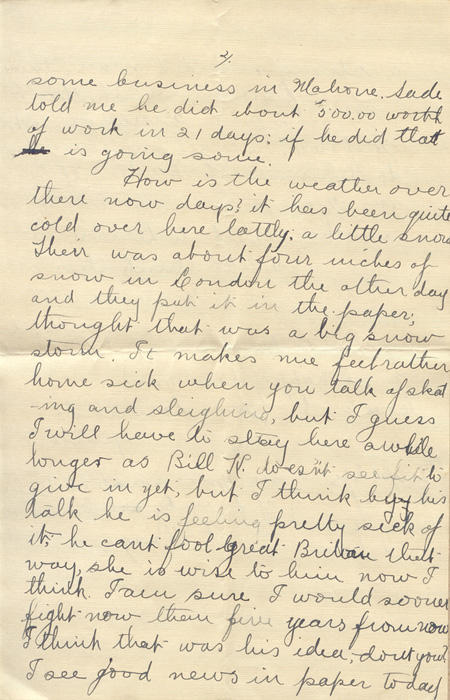 2/.
some business in Mahone. Sade
told me he did about $500.00 worth
of work in 21 days; if he did that
is going some.
How is the weather over
there now days? it has been quite
cold over here lattly; a little snow
Their was about four inches of
snow in London the other day
and they put it in the paper;
thought that was a big snow
storm. It makes me feel rather
home sick when you talk of skat
-ing and sleighing, but I guess
I will have to stay here awhile
longer as Bill K. doesn't see fit to
give in yet, but I think by his
talk he is feeling pretty sick of
it; he cant fool Great Britain that
way, she is wise to him now I
think. I am sure I would sooner
fight now than five years from now
I think that was his idea; dont you?
I see good news in paper today